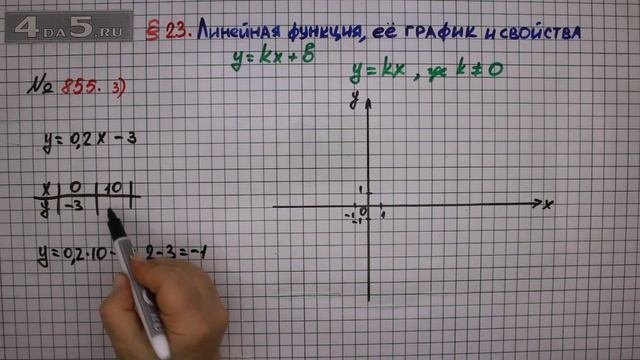 4DA5.RU
§ 23. Линейная функция, её график и свойства
y = kx + b
y = kx , где k ≠ 0
№ 855. 3)
y = 0,2x − 3
x | 0 | 10 |
y | −3 |
y = 0,2·10 − 2 − 3 = −1
y
1
−1 0 1 x
−1